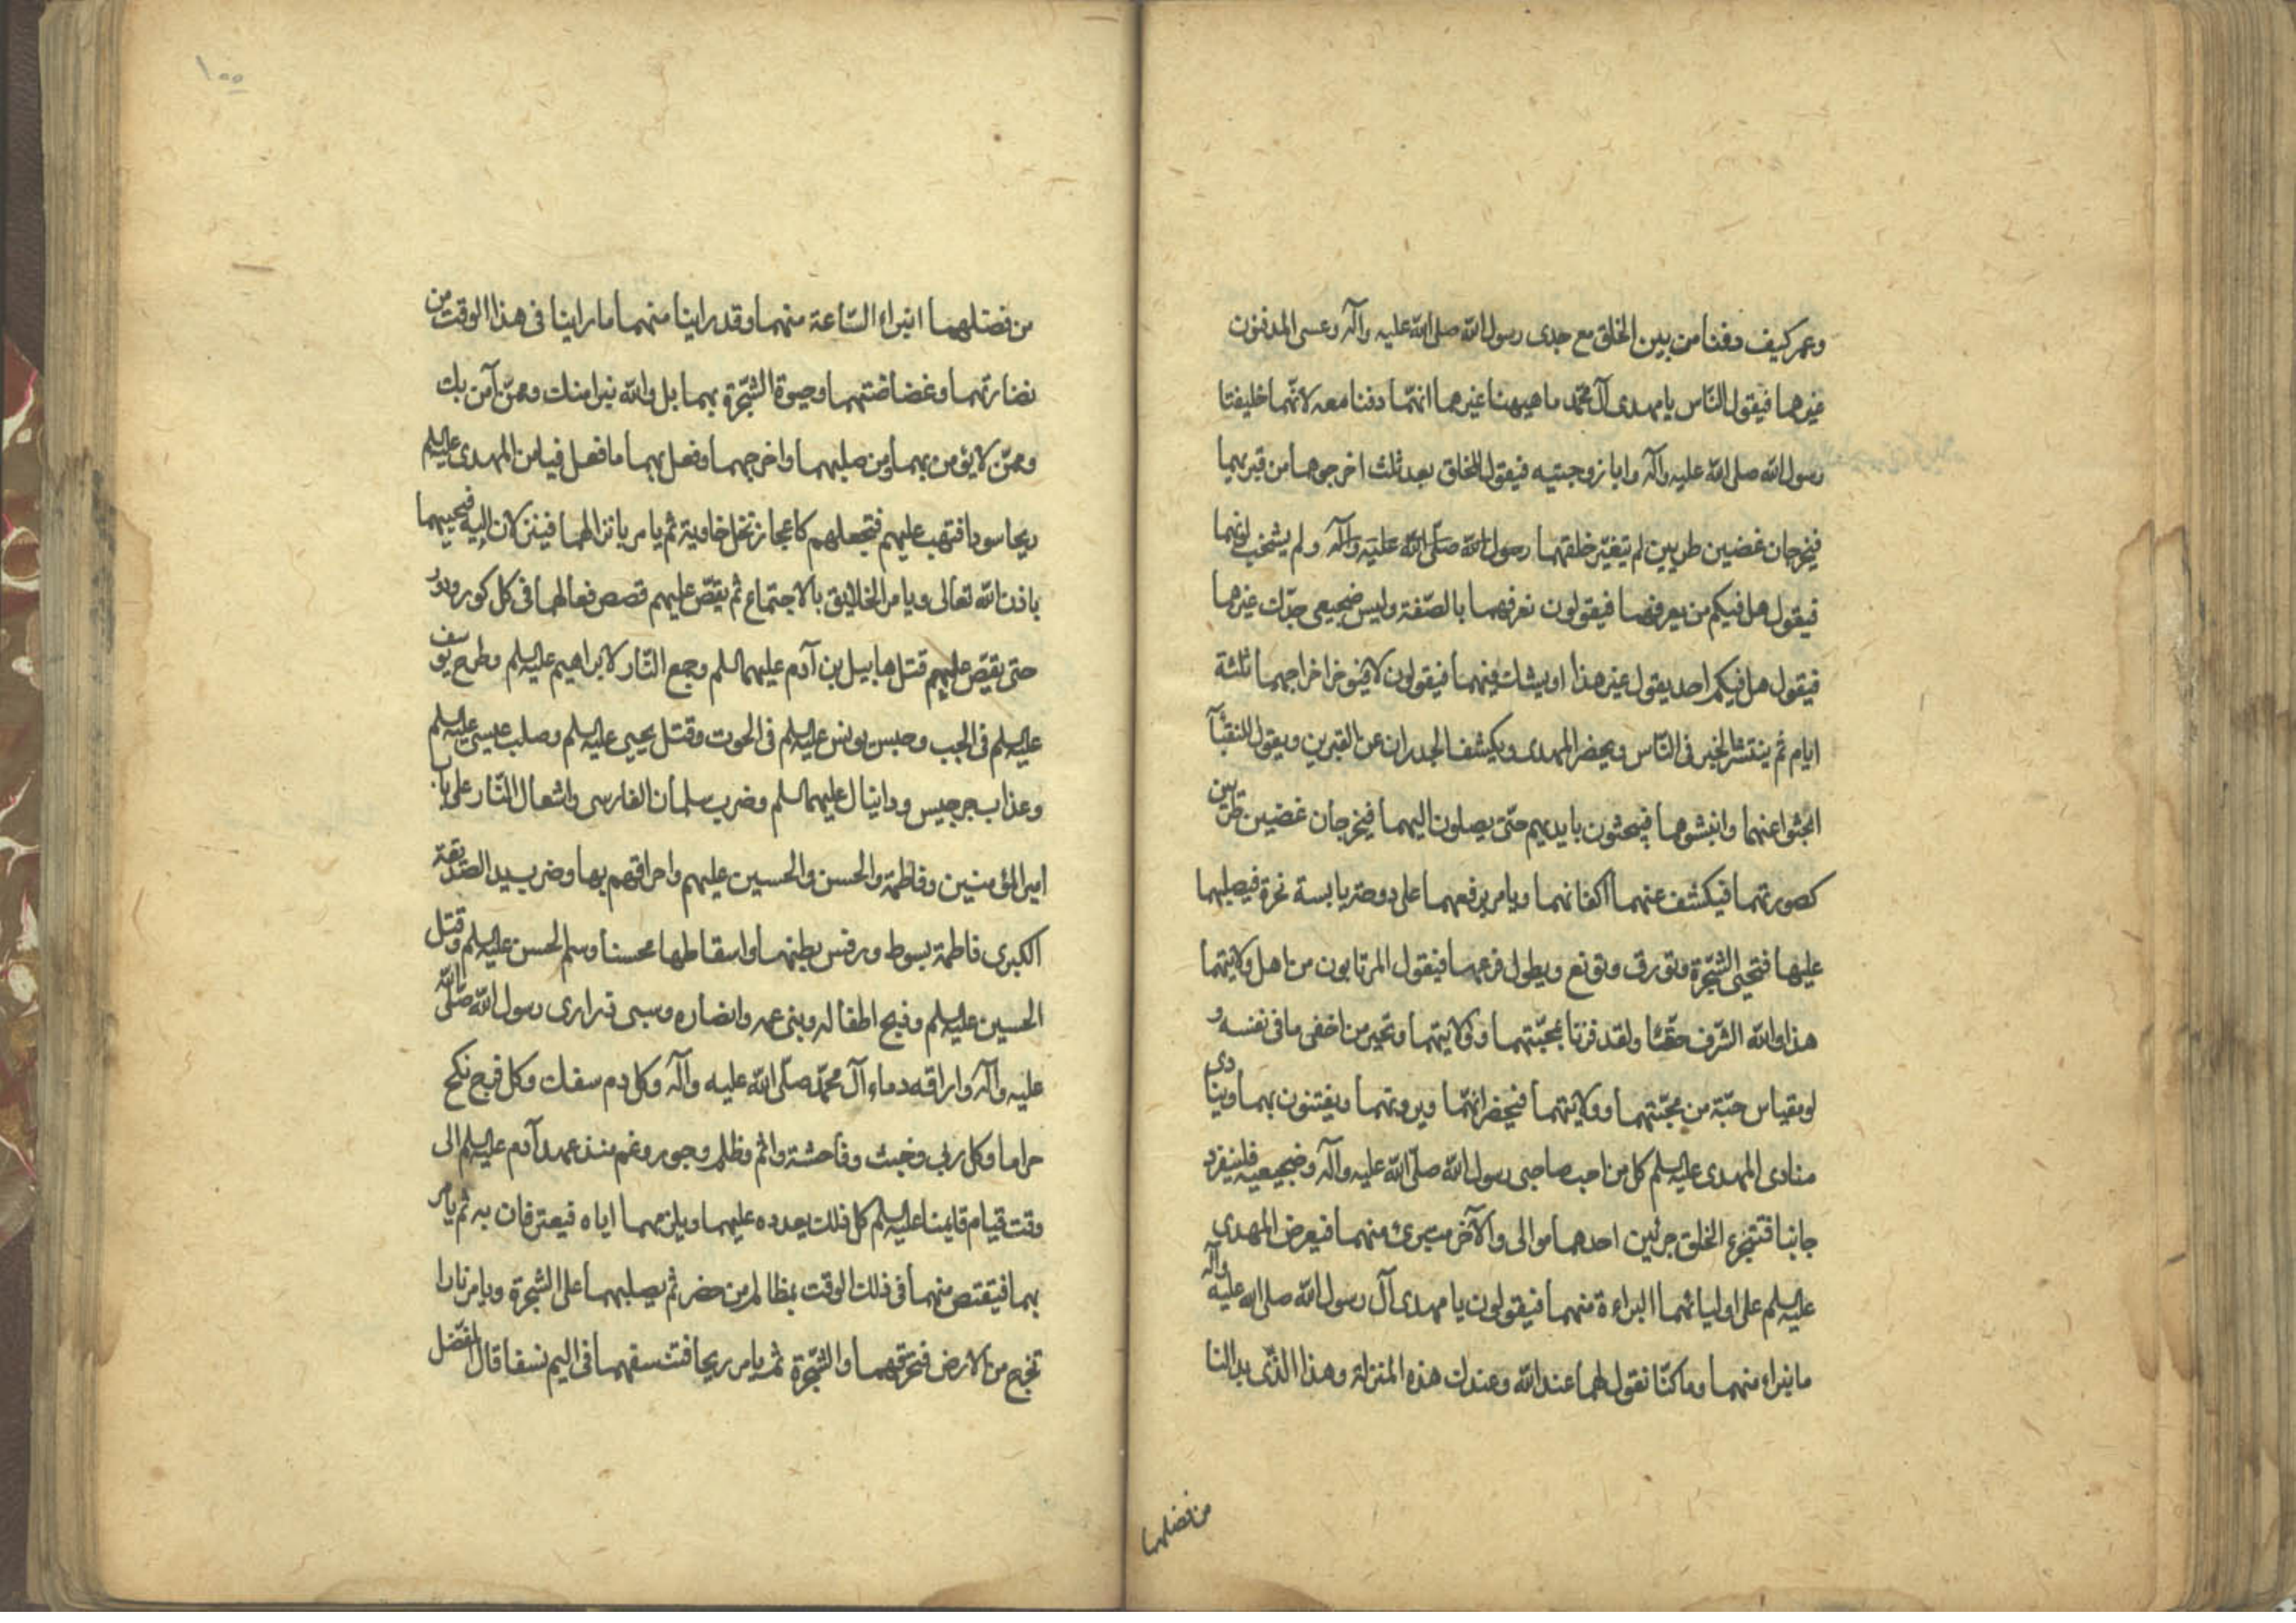 وعمر كيف دفنا من بين الخلق مع جدى رسول الله صلى الله عليه وآله وعسى المدفون
غيرهما فيقول الناس يا مهدى آل محمد ما ههنا غيرهما انهما دفنا معه لانهما خليفتا
رسول الله صلى الله عليه وآله وابا زوجتيه فيقول للخلق بعد ثلث اخرجوهما من قبريهما
فيخرجان غضين طريين لم تتغير خلقتهما رسول الله صلى الله عليه وآله ولم يشحب لونهما
فيقول هل فيكم من يعرفهما فيقولون نعرفهما بالصفة وليس ضجيعى جدك غيرهما
فيقول هل فيكم احد يقول غير هذا او يشك فيهما فيقولون لا فيؤخر اخراجهما ثلثة
ايام ثم ينتشر الخبر فى الناس ويحضر المهدى ويكشف الجدران عن القبرين ويقول للنقبآ
ابحثوا عنهما وانبشوهما فيبحثون بايديهم حتى يصلون اليهما فيخرجان غضين طريين
كصورتهما فيكشف عنهما اكفانهما ويامر برفعهما على دوحة يابسة نخرة فيصلبهما
عليها فتحيى الشجرة وتورق وتونع ويطول فرعها فيقول المرتابون من اهل ولايتهما
هذا والله الشرف حقا ولقد فزنا بمحبتهما وولايتهما ويخبر من اخفى ما فى نفسه و
لو مقياس حبة من محبتهما وولايتهما فيحضرانهما ويرونهما ويفتنون بهما وينادى
منادى المهدى عليه السلم كل من احب صاحبى رسول الله صلى الله عليه وآله وضجيعيه فلينفرد
جانبا فتتجزء الخلق جزئين احدهما موالى والآخر متبرئ منهما فيعرض المهدى
عليه السلم على اوليائهما البراءة منهما فيقولون يا مهدى آل رسول الله صلى الله عليه وآله
ما نبراء منهما وما كنا نقول لهما عند الله وعندك هذه المنزلة وهذا الذى بدا لنا
من فضلهما
١٠٠
من فضلهما انبراء الساعة منهما وقد راينا منهما ما راينا فى هذا الوقت من
نضارتهما وغضاضتهما وحيوة الشجرة بهما بل والله نبرا منك وممن آمن بك
وممن لا يؤمن بهما ومن صلبهما واخرجهما وفعل بهما ما فعل فيامر المهدى عليه السلم
ريحا سودا فتهب عليهم فتجعلهم كاعجاز نخل خاوية ثم يامر بانزالهما فينزلان اليه فيحييهما
باذن الله تعالى ويامر الخلايق بالاجتماع ثم يقص عليهم قصص فعالهما فى كل كور ودور
حتى يقص عليهم قتل هابيل بن آدم عليهما السلم وجمع النار لابراهيم عليه السلم وطرح يوسف
عليه السلم فى الجب وحبس يونس عليه السلم فى الحوت وقتل يحيى عليه السلم وصلب عيسى عليه السلم
وعذاب جرجيس ودانيال عليهما السلم وضرب سلمان الفارسى واشعال النار على باب
امير المؤمنين وفاطمة والحسن والحسين عليهم واحراقهم بها وضرب يد الصديقة
الكبرى فاطمة بسوط ورفس بطنها واسقاطها محسنا وسم الحسن عليه السلم وقتل
الحسين عليه السلم وذبح اطفاله وبنى عمه وانصاره وسبى ذرارى رسول الله صلى الله
عليه وآله واراقه دماء آل محمد صلى الله عليه وآله وكل دم سفك وكل فرج نكح
حراما وكل ربى وخبث وفاحشة واثم وظلم وجور وغم منذ عهد آدم عليه السلم الى
وقت قيام قايمنا عليه السلم كل ذلك يعدده عليهما ويلزمهما اياه فيعترفان به ثم يامر
بهما فيقتص منهما فى ذلك الوقت بمظالم من حضر ثم يصلبهما على الشجرة ويامر نارا
تخرج من الارض فتحرقهما والشجرة ثم يامر ريحا فتنسفهما فى اليم نسفا قال المفضل